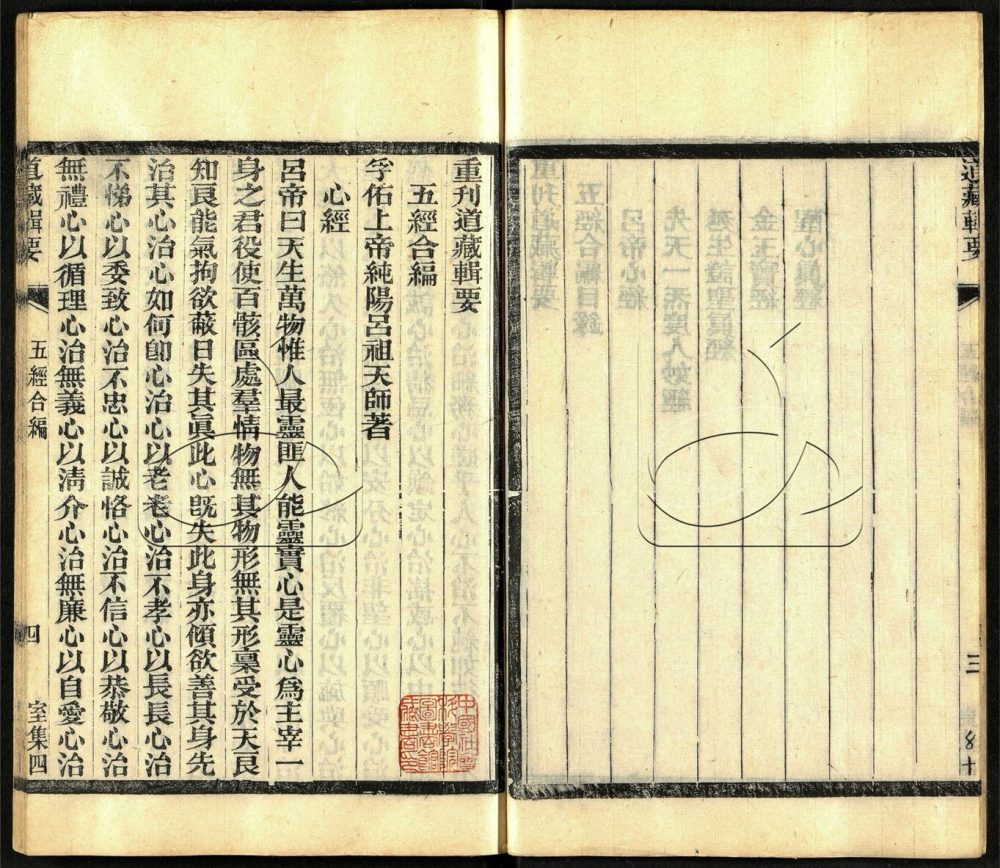 道藏輯要
三
重刊道藏輯要
五經合編
孚佑上帝純陽呂祖天師著
心經
呂帝曰天生萬物惟人最靈匪人能靈實心是靈心爲主宰一
身之君役使百骸區處羣情物無其物形無其形稟受於天良
知良能氣拘欲蔽日失其眞此心旣失此身亦傾欲善其身先
治其心治心如何卽心治心以老老心治不孝心以長長心治
不悌心以委致心治不忠心以誠恪心治不信心以恭敬心治
無禮心以循理心治無義心以淸介心治無廉心以自愛心治
道藏輯要
五經合編
四
室集四